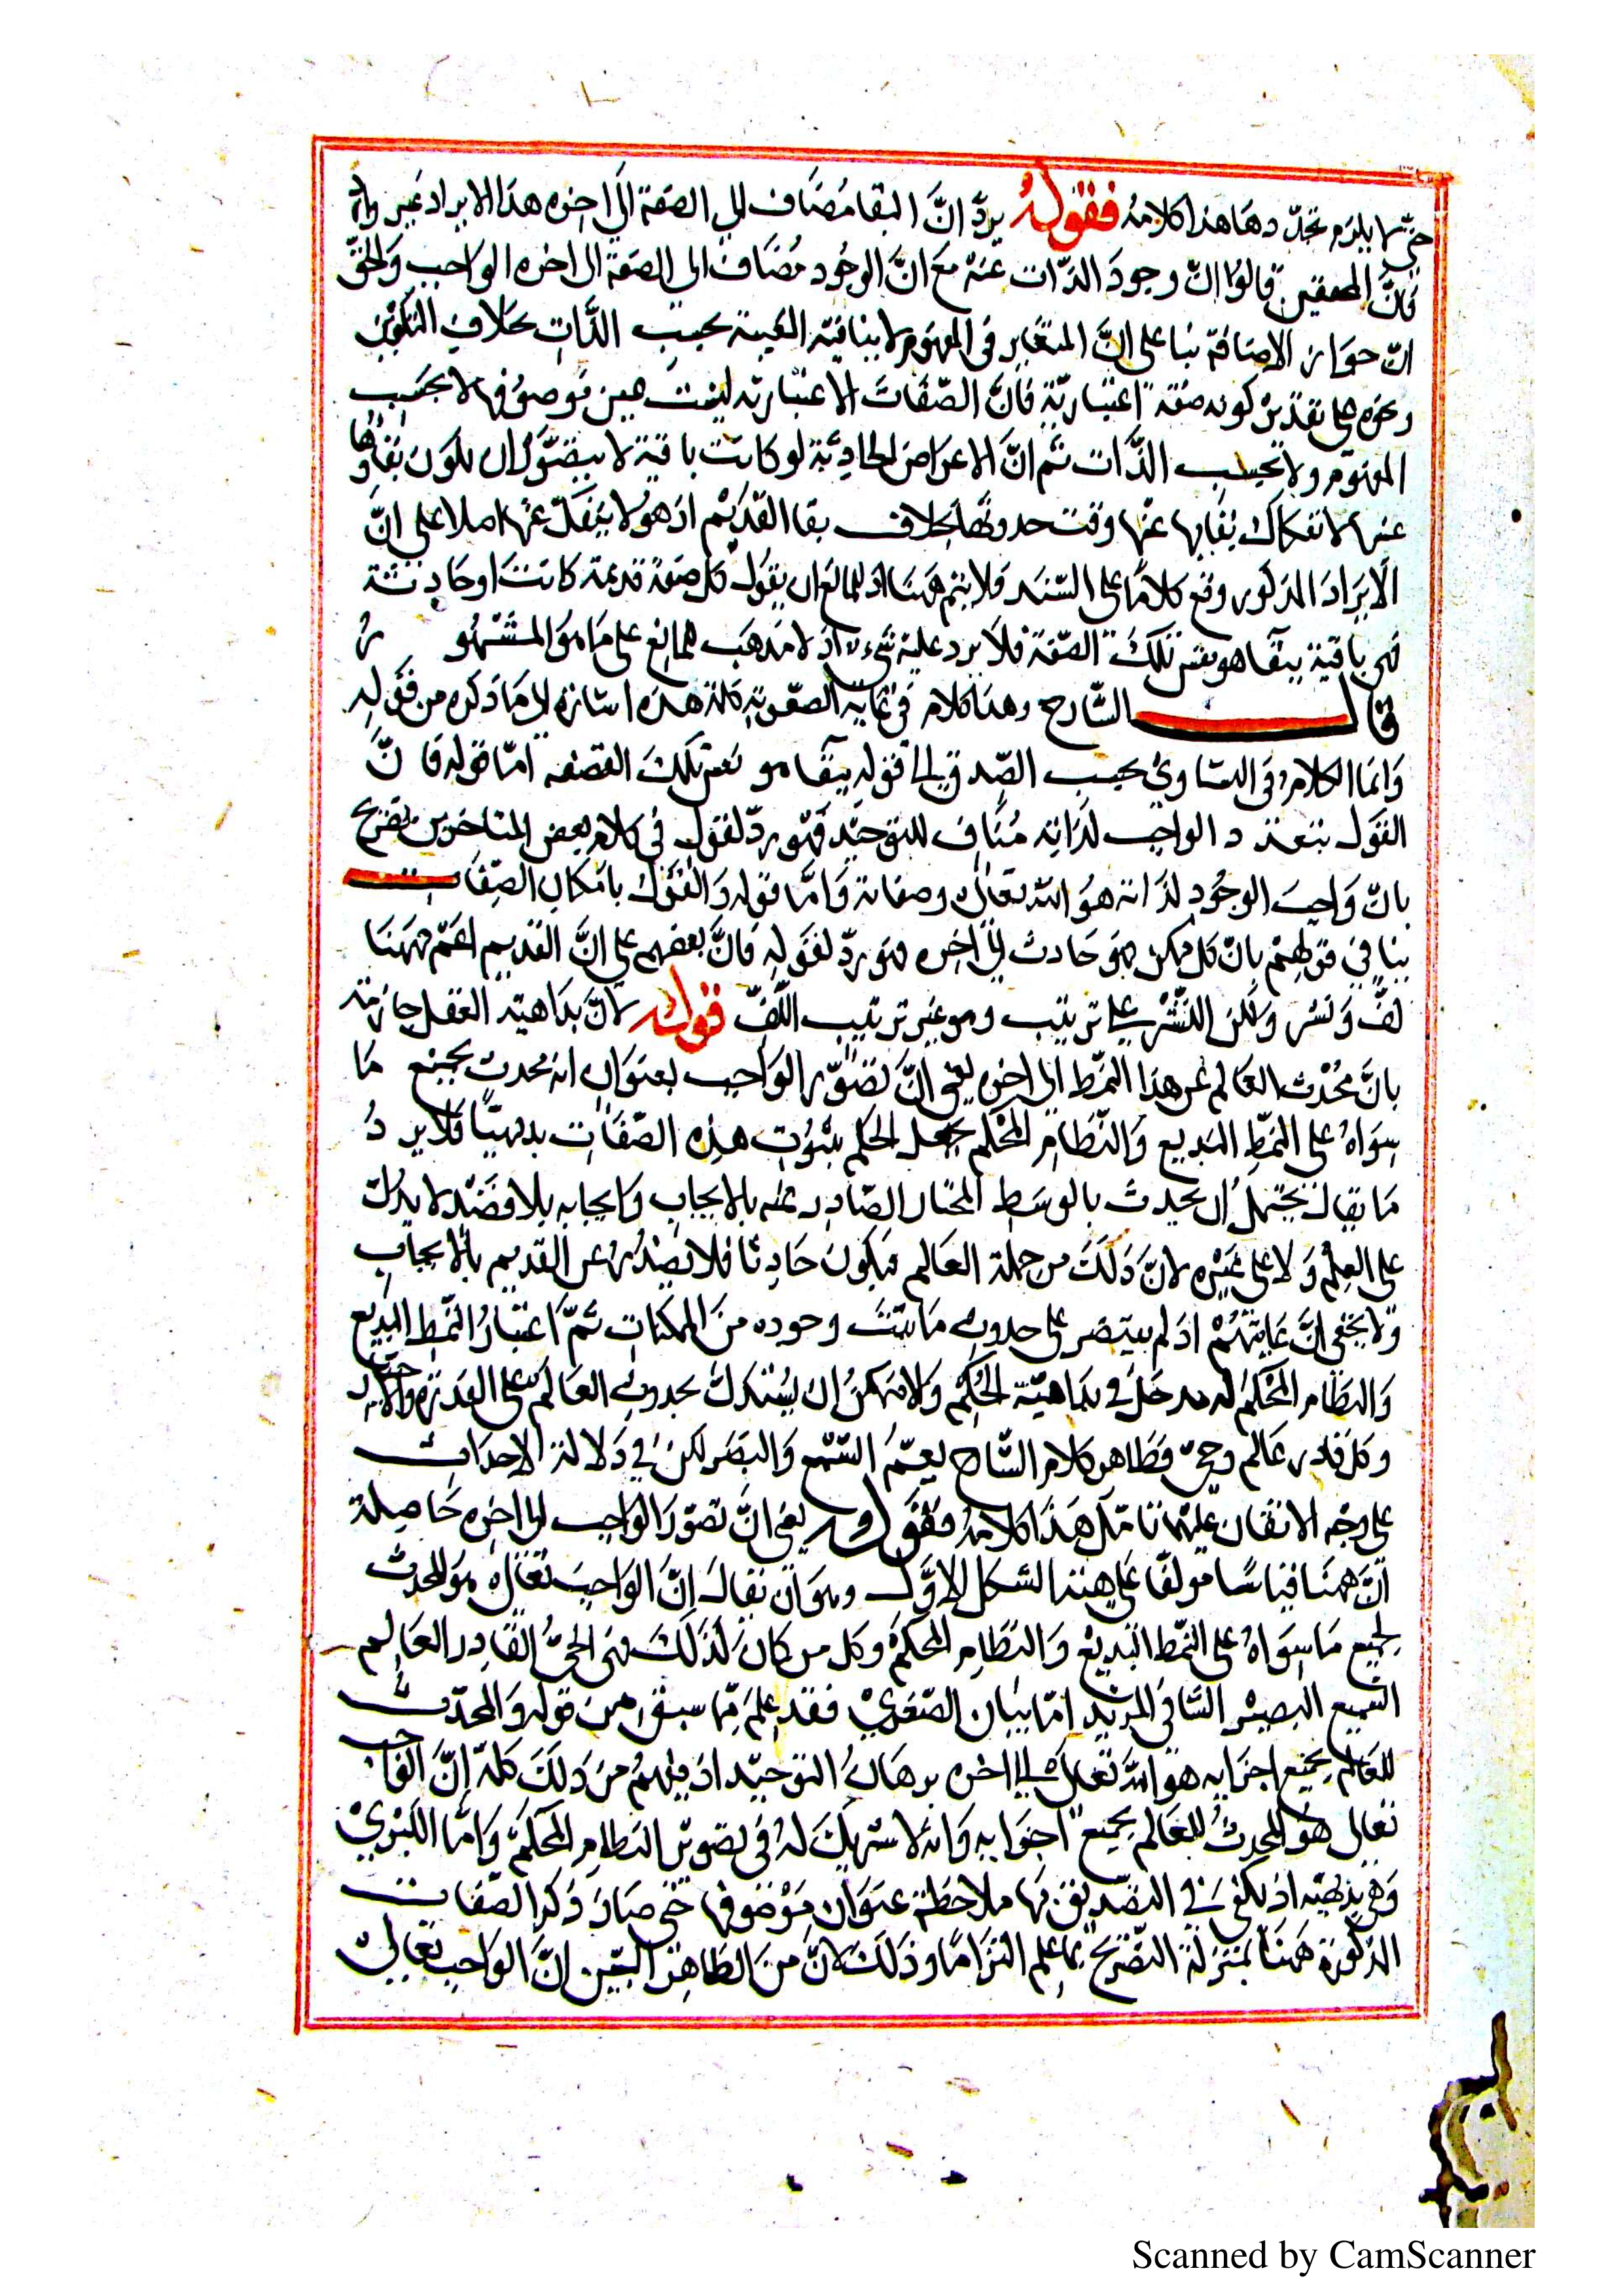 حتى لا يلزم تجدّدها هذا كلامه فقوله يردّ انّ البقا مضاف الى الصفة الى اخره هذا الايراد غير وارد
فانّ المحققين قالوا انّ وجود الذات عينه مع انّ الوجود مضاف الى الصفة الى اخره الواجب والحقّ
انّ جواز الاضافة بنا على انّ المتغاير فى المفهوم لا ينافيه العينية بحسب الذّات بخلاف التكوين
ونحوه على تقدير كونه صفة اعتباريّة فانّ الصّفات الاعتباريّة ليست عين موصوفها لا بحسب
المفهوم ولا بحسب الذّات ثم انّ الاعراض الحادثة لو كانت باقية لا يتصوّر ان يكون بقاؤها
عينها لانفكاك بقايها عنها وقت حدوثها بخلاف بقا القديم اذ هو لا ينفكّ عنها اصلا على انّ
الايراد المذكور وقع كلاما على السّند فلا يتم ههنا اذ للمانع ان يقول كل صفة قديمة كانت او حادثة
فهى باقية ببقا هو نفس تلك الصّفة فلا يرد عليه شىء اذ لا مذهب للمانع على ما هو المشهور
قال الشّارح وهذا كلام فى غاية الصّعوبة كلمة هذه اشارة الى ما ذكره من قوله
وانما الكلام فى التساوي بحسب الصّدق الى قوله ببقا هو نفس تلك الصفة امّا قوله فانّ
القول بتعدّد الواجب لذاته مناف للتوحيد فهو ردّ لقوله فى كلام بعض المتاخرين تصريح
بانّ واجب الوجود لذاته هو الله تعالى وصفاته وامّا قوله والقول بامكان الصّفات
ينافى قولهم بانّ كل ممكن فهو حادث الى اخره فهو ردّ لقوله فانّ بعضهم على انّ القديم اعمّ فههنا
لفّ ونشر ولكن النّشر على ترتيب وهو غير ترتيب اللّفّ قوله لانّ بداهية العقل جازمة
بانّ محدث العالم على هذا النمّط الى اخره يعنى انّ تصوّر الواجب بعنوان انه محدث لجميع ما
سواه على النمّط البديع والنّظام المحكم يجعل الحكم بثبوت هذه الصّفات بديهيّا فلا يرد
ما يقال يحتمل ان يحدث بالوسط المختار الصّادر عنه بالايجاب وايجابه بلا قصد لا يدل
على العلم ولا على غيره لانّ ذلك من جملة العالم فيكون حادثا فلا يصدر عن القديم بالايجاب
ولا يخفى انّ غايتهم اذ لم يقتصر على حدوث ما ثبت وجوده من الممكنات ثمّ اعتبار النّمط البديع
والنظام المحكم له مدخل فى بداهيّة الحكم والا فيمكن ان يستدل بحدوث العالم على القدرة والاختيار
وكل قادر عالم وحىّ فظاهر كلام الشّارح يعمّ السّمع والبصر لكن فى دلالة الاحداث
على وجه الاتقان عليهما تامّل هذا كلامه فقوله يعنى انّ تصوّر الواجب الى اخره حاصله
انّ ههنا قياسا مولفا على هيئة الشكل الاوّل وهو ان يقال انّ الواجب تعالى هو المحدث
لجميع ما سواه على النمّط البديع والنظام المحكم وكل من كان كذلك فهو الحىّ القادر العالم
السّميع البصير الشائى المريد امّا بيان الصّغري فقد علم ممّا سبق من قوله والمحدث
للعالم بجميع اجزايه هو الله تعالى الى اخره برهان التوحيد اذ يفهم من ذلك كله انّ الواجب
تعالى هو المحدث للعالم بجميع اجزايه وانه لا شريك له فى تصوير النظام المحكم وامّا الكبري
وهى بديهيّة اذ يكفى فى التصديق بها ملاحظة عنوان موضوعها حتى صار ذكر الصّفات
المذكورة ههنا بمنزلة التصريح بما علم التزاما وذلك لانّ من الظاهر البيّن انّ الواجب تعالى
Scanned by CamScanner